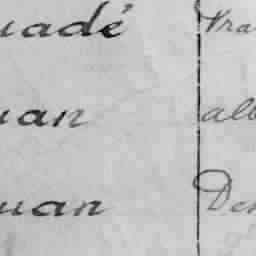 uadé Fra
uan alb
uan Den